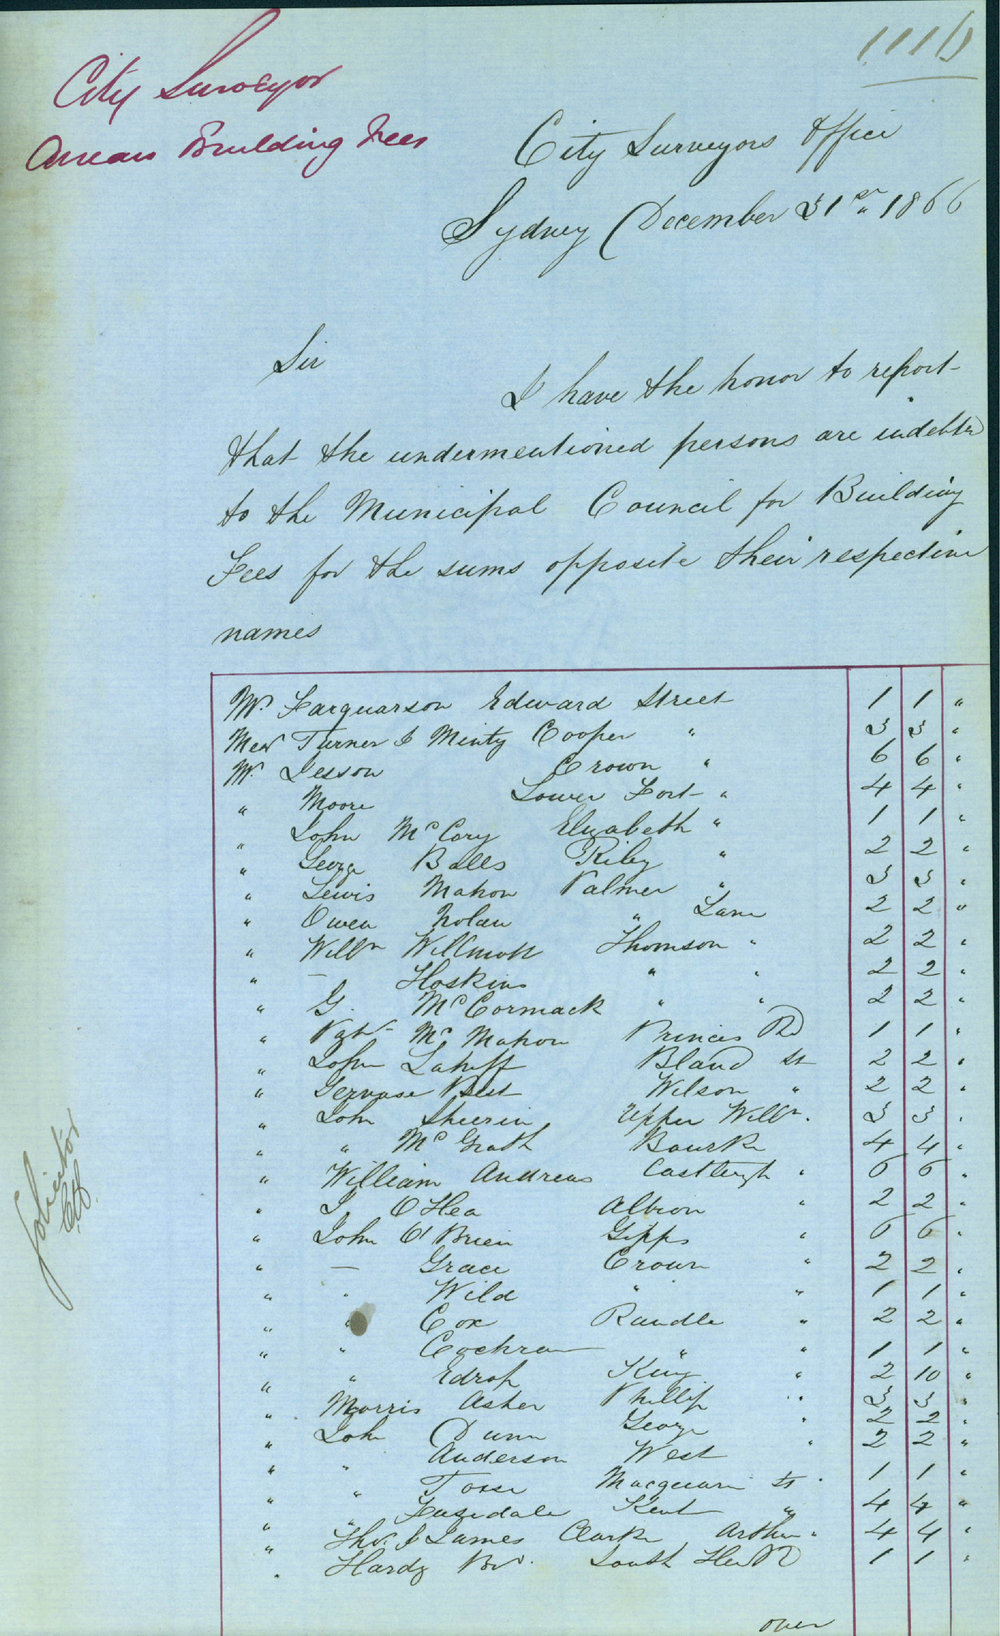 1116
City Surveyor
Arrears Building Fees
City Surveyors Office
Sydney December 31st 1866
Sir
I have the honor to report
that the undermentioned persons are indebted
to the Municipal Council for Building
Fees for the sums opposite their respective
names
Mr. Farquarson Edward Street 1 1 "
Turner & Minty Cooper " 3 3 "
Mr Jesson Crown " 6 6 "
" Moore Lower Fort " 4 4 "
" John McCory Elizabeth " 1 1 "
" George Balls Riley " 2 2 "
" Lewis Mahon Palmer " 3 3 "
" Owen Nolan " Lane 2 2 "
" Willm Willmott Thomson " 2 2 "
" — Hoskins " " 2 2 "
" G. McCormack " " 2 2 "
" Patk McMahon Princes Rd 1 1 "
" John Lahiff Bland St 2 2 "
" Gervase Best Wilson " 2 2 "
" John Sheerin Upper Willm. 3 3 "
" " McGrath Bourke 4 4 "
" William Andrews Castleigh " 6 6 "
" J. O'Hea Albion " 2 2 "
" John O'Brien Gipps " 6 6 "
" — Grace Crown " 2 2 "
" " Wild " " 1 1 "
" " Cox Randle " 2 2 "
" " Cochran " " 1 1 "
" " Edrop King " 2 10 "
" Morris Asher Phillip " 3 3 "
" John Dunn George " 2 2 "
" " Anderson West " 2 2 "
" " Macquarie St 1 1 "
" " Kent " 4 4 "
" Thos. & James Clarke Arthur " 4 4 "
" Hardy Br. South Head Rd 1 1 "
over
Solicitor